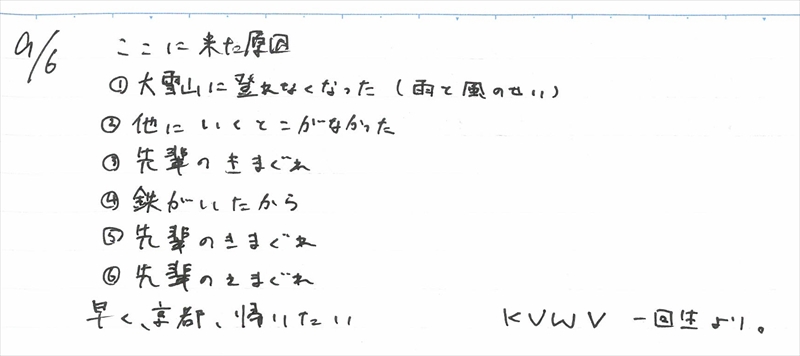 9/6 ここに来た原因
① 大雪山に登れなくなった（雨と風のせい）
② 他にいくとこがなかった
③ 先輩のきまぐれ
④ 鉄がいたから
⑤ 先輩のきまぐれ
⑥ 先輩のきまぐれ
早く、京都、帰りたい KVWV 一回生より。